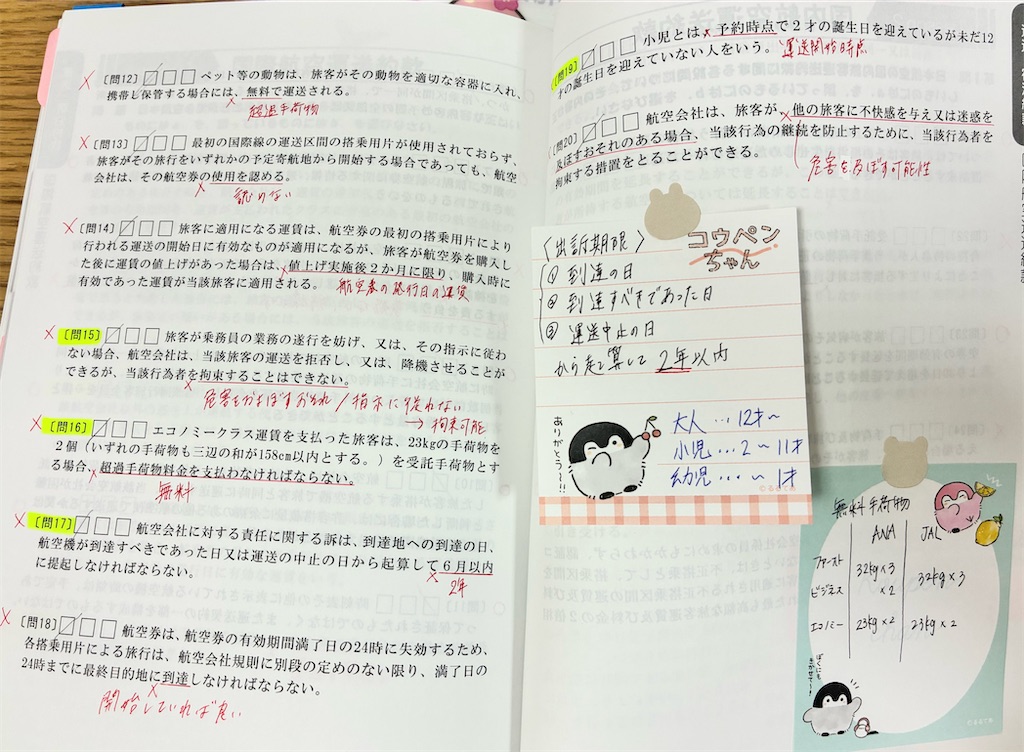 × 〔問12〕 ペット等の動物は、旅客がその動物を適切な容器に入れ、
携帯し保管する場合には、無料で運送される。
× 超過手荷物
× 〔問13〕 最初の国際線の運送区間の搭乗用片が使用されておらず、
旅客がその旅行をいずれかの予定寄航地から開始する場合であっても、航空
会社は、その航空券の使用を認める。
× 認めない
× 〔問14〕 旅客に適用になる運賃は、航空券の最初の搭乗用片により
行われる運送の開始日に有効なものが適用になるが、旅客が航空券を購入し
た後に運賃の値上げがあった場合は、値上げ実施後2か月に限り、購入時に
有効であった運賃が当該旅客に適用される。
× 航空券の発行日の運賃
× 〔問15〕 旅客が乗務員の業務の遂行を妨げ、又は、その指示に従わ
ない場合、航空会社は、当該旅客の運送を拒否し、又は、降機させることが
できるが、当該行為者を拘束することはできない。
× 危害をおよぼすおそれ/指示に従わない
→ 拘束可能
× 〔問16〕 エコノミークラス運賃を支払った旅客は、23kgの手荷物を
2個(いずれの手荷物も三辺の和が158cm以内とする。)を受託手荷物とす
る場合、超過手荷物料金を支払わなければならない。
× 無料
× 〔問17〕 航空会社に対する責任に関する訴は、到達地への到達の日、
航空機が到達すべきであった日又は運送の中止の日から起算して6月以内
に提起しなければならない。
× 2年
× 〔問18〕 航空券は、航空券の有効期間満了日の24時に失効するため、
各搭乗用片による旅行は、航空会社規則に別段の定めのない限り、満了日の
24時までに最終目的地に到達しなければならない。
× 開始していれば良い
〔問19〕 小児とは、予約時点で2才の誕生日を迎えているが未だ12
才の誕生日を迎えていない人をいう。 運送開始時点
〔問20〕 航空会社は、旅客が、他の旅客に不快感を与え又は迷惑を
及ぼすおそれのある場合、当該行為の継続を防止するために、当該行為者を
拘束する措置をとることができる。
危害を及ぼす可能性
〈出訴期限〉
コウペン
ちゃん
① 到達の日
② 到達すべきであった日
③ 運送中止の日
から起算して 2年以内
大人…12才~
小児…2~11才
幼児…~1才
ありがとう~!!
©るるてあ
無料手荷物
ANA JAL
ファースト 32kg×3 32kg×3
ビジネス ×2
エコノミー 23kg×2 23kg×2
ぼくにも
きかせて~!
©るるてあ